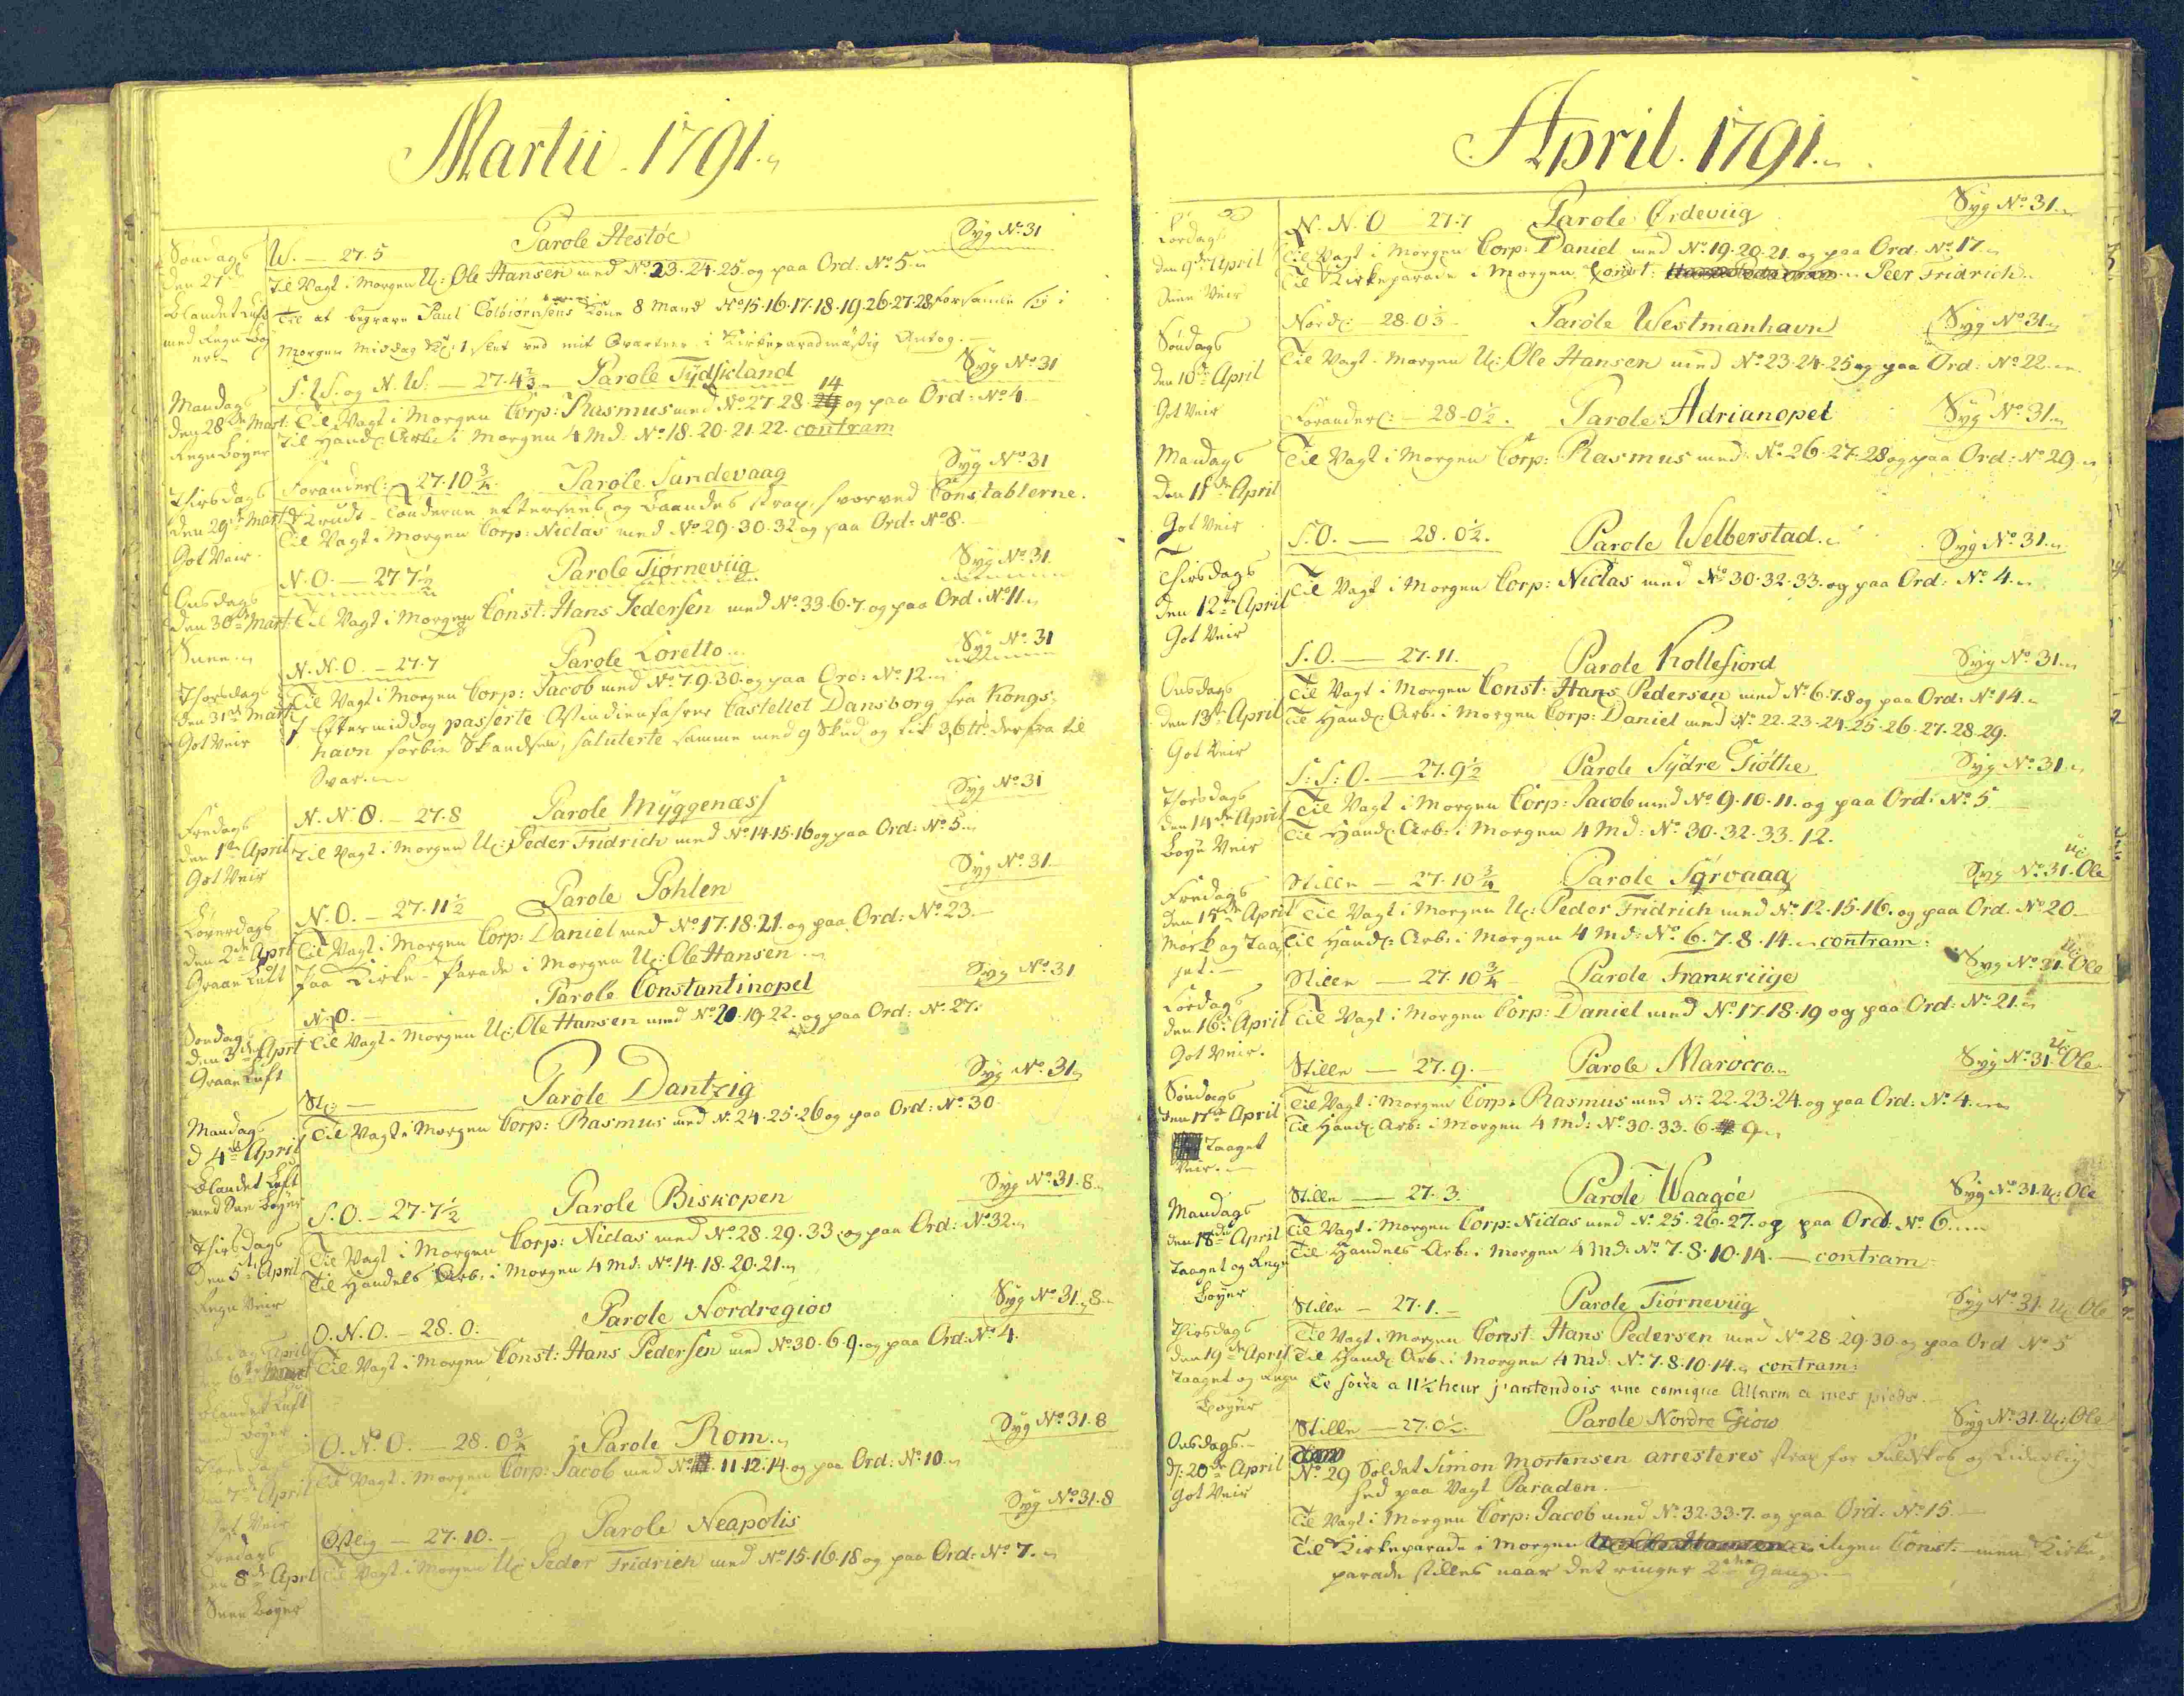 Martii. 1791.
Søndags W. — 27.5 Parole Hestöe Syg No. 31
den 27de Til Vagt i Morgen U: Ole Hansen med No. 23.24.25. og paa Ord: No. 5.
Blandet Luft Til at begrave Paul Colbiörnsens Kone 8 Mand No. 15.16.17.18.19.26.27.28 forsamle sig i
med Regn Boy
er Morgen Middag Kl: 1 slet ved mit Qvarteer i Kirkeparadmæssig Antog.
S.W. og N.W. — 27.4 2/3 Parole Tÿdskland Syg No. 31
Mandags
den 28de Mart. Til Vagt i Morgen Corp: Rasmus med No. 27.28. 14 og paa Ord: No. 4.
Regn Boyer Til Handl: Arbe: i Morgen 4 Md. No. 18.20.21.22. contram
Foranderl: 27.10 3/4. Parole Sandevaag Syg No. 31
Thirsdags Krudt-Tönderne eftersees og Baandes strax, hvorved Constablerne.
den 29de Mart Til Vagt i Morgen Corp: Niclas med No. 29.30.32 og paa Ord: No. 8.
Got Veir.
N.O. — 27 7 1/2 Parole Tiörneviig Syg No. 31.
Onsdags
den 30de Mart. Til Vagt i Morgen Const: Hans Pedersen med No. 33.6.7. og paa Ord: No. 11.
Snee.
N.N.O. — 27.7 Parole Loretto Syg No. 31
Thorsdags Til Vagt i Morgen Corp: Jacob med No. 7.9.30. og paa Ord: No. 12.
den 31de Marti I Eftermiddag passerte Ostindienfahrer Castellet Dansborg fra Kongs-
Got Veir havn forbie Skandsen, saluterte samme med 9 Skud og fik 3, 6 tt: derfra til
Svar.
N.N.O. — 27.8 Parole Mÿggenæss Syg No. 31
Fredags
den 1te April Til Vagt i Morgen U: Peder Fridrich med No. 14.15.16 og paa Ord: No. 5.
Got Veir
N.O. — 27.11 1/2 Parole Pohlen Syg No. 31
Löverdags
den 2de Aprl Til Vagt i Morgen Corp: Daniel med No. 17.18.21. og paa Ord: No. 23.
Graae Luft Paa Kirke-Parade i Morgen U: Ole Hansen
N.O. — Parole Constantinopel Syg No. 31
Söndag
den 3de Aprl Til Vagt i Morgen U: Ole Hansen med No. 20.19.22. og paa Ord: No. 27.
Graae Luft
St: — Parole Dantzig Syg No. 31
Mandags Til Vagt i Morgen Corp: Rasmus med No. 24.25.26 og paa Ord: No. 30
d 4de April
Blandet Luft
med Snee Boyer
S.O. — 27.7 1/2 Parole Biskopen Syg No. 31.8
Thirsdags Til Vagt i Morgen Corp: Niclas med No. 28.29.33. og paa Ord: No. 32.
den 5te April Til Handels Arb: i Morgen 4 Md: No. 14.18.20.21.
Regn Veir
O.N.O. — 28.0. Parole Nordregiöv Syg No. 31.8
Onsdag April
6te Til Vagt i Morgen Const: Hans Pedersen med No. 30.6.9. og paa Ord: No. 4.
Blandet Luft
med Boyer
O.N.O. — 28.0 3/4 Parole Rom. Syg No. 31.8
Thorsdag
den 7de April Til Vagt i Morgen Corp: Jacob med No. 11.12.14. og paa Ord: No. 10
Got Veir
Östlig — 27.10. Parole Neapolis Syg No. 31.8
Fredags
den 8de Aprl Til Vagt i Morgen U: Peder Fridrich med No. 15.16.18 og paa Ord: No. 7.
Snee Boyer
April. 1791.
N.N.O 27.7 Parole Ördeviig Syg No. 31
Lördags Til Vagt i Morgen Corp: Daniel med No. 19.20.21. og paa Ord: No. 17.
den 9de April Til Kirkeparade i Morgen Const: Peer Fridrich
Snee Veir
Nordl: — 28.0 1/3 Parole Westmanhavn Syg No. 31
Söndags
den 10de April Til Vagt i Morgen U: Ole Hansen med No. 23.24.25 og paa Ord: No. 22.
Got Veir
Foranderl: — 28-0 1/2. Parole Adrianopel Syg No. 31
Mandags Til Vagt i Morgen Corp: Rasmus med No. 26.27.28 og paa Ord: No. 29
den 11te April
Got Veir
S.O. — 28.0 1/2. Parole Welberstad. Syg No. 31
Thirsdags Til Vagt i Morgen Corp: Niclas med No. 30.32.33. og paa Ord: No. 4.
den 12te April
Got Veir
S.O. — 27.11. Parole Kollefiord Syg No. 31
Onsdags Til Vagt i Morgen Const: Hans Pedersen med No. 6.7.8 og paa Ord: No. 14.
den 13de April Til Handl: Arb: i Morgen Corp: Daniel med No. 22.23.24.25.26.27.28.29.
Got Veir
S:S:O. — 27.9 1/2 Parole Sÿdre Giöthe Syg No. 31
Thorsdags Til Vagt i Morgen Corp: Jacob med No. 9.10.11. og paa Ord: No. 5
den 14de April Til Handl: Arb: i Morgen 4 Md: No. 30.32.33.12.
Boye Veir
Stille — 27.10 3/4 Parole Sørvaag Syg No. 31. U: Ole
Fredags
den 15de April Til Vagt i Morgen U: Peder Fridrich med No. 12.15.16. og paa Ord. No. 20
Mörk og Taa Til Handl: Arb: i Morgen 4 Md: No. 6.7.8.14. contram:
get.
Stille — 27.10 3/4 Parole Frankriige Syg No. 31. U: Ole
Lördags
den 16de April Til Vagt i Morgen Corp: Daniel med No. 17.18.19 og paa Ord: No. 21.
Got Veir.
Stille — 27.9. Parole Marocco Syg No. 31. U: Ole
Söndags Til Vagt i Morgen Corp: Rasmus med No. 22.23.24. og paa Ord: No. 4.
den 17de April Til Handl: Arb: i Morgen 4 Md: No. 30.33.6. 9
Taaget
Veir.
Stille — 27.3. Parole Waagöe Syg No. 31. U: Ole
Mandags Til Vagt i Morgen Corp: Niclas med No. 25.26.27. og paa Ord: No. 6.
den 18de April Til Handels Arb: i Morgen 4 Md: No. 7.8.10.14. — contram
Taaget og Regn
Boyer
Stille — 27.1. Parole Tiörneviig Syg No. 31. U: Ole
Thirsdags Til Vagt i Morgen Const: Hans Pedersen med No. 28.29.30. og paa Ord No. 5
den 19de April Til Handl: Arb: i Morgen 4 Md: No. 7.8.10.14. contram:
Taaget og Regn Ce soire a 11 1/2 heur j'antendois une comique Allarm a mes pieds.
Boyer
Stille — 27.0 1/2. Parole Nordre Giöw Syg No. 31. U: Ole
Onsdags
d: 20de April No. 29 Soldat Simon Mortensen arresteres strax for Fuldskab og Liderlig-
Got Veir hed paa Vagt Paraden.
Til Vagt i Morgen Corp: Jacob med No. 32.33.7. og paa Ord: No. 15
Til Kirkeparade i Morgen ingen Const: men Kirke-
parade stilles naar det ringer 2den Gang.